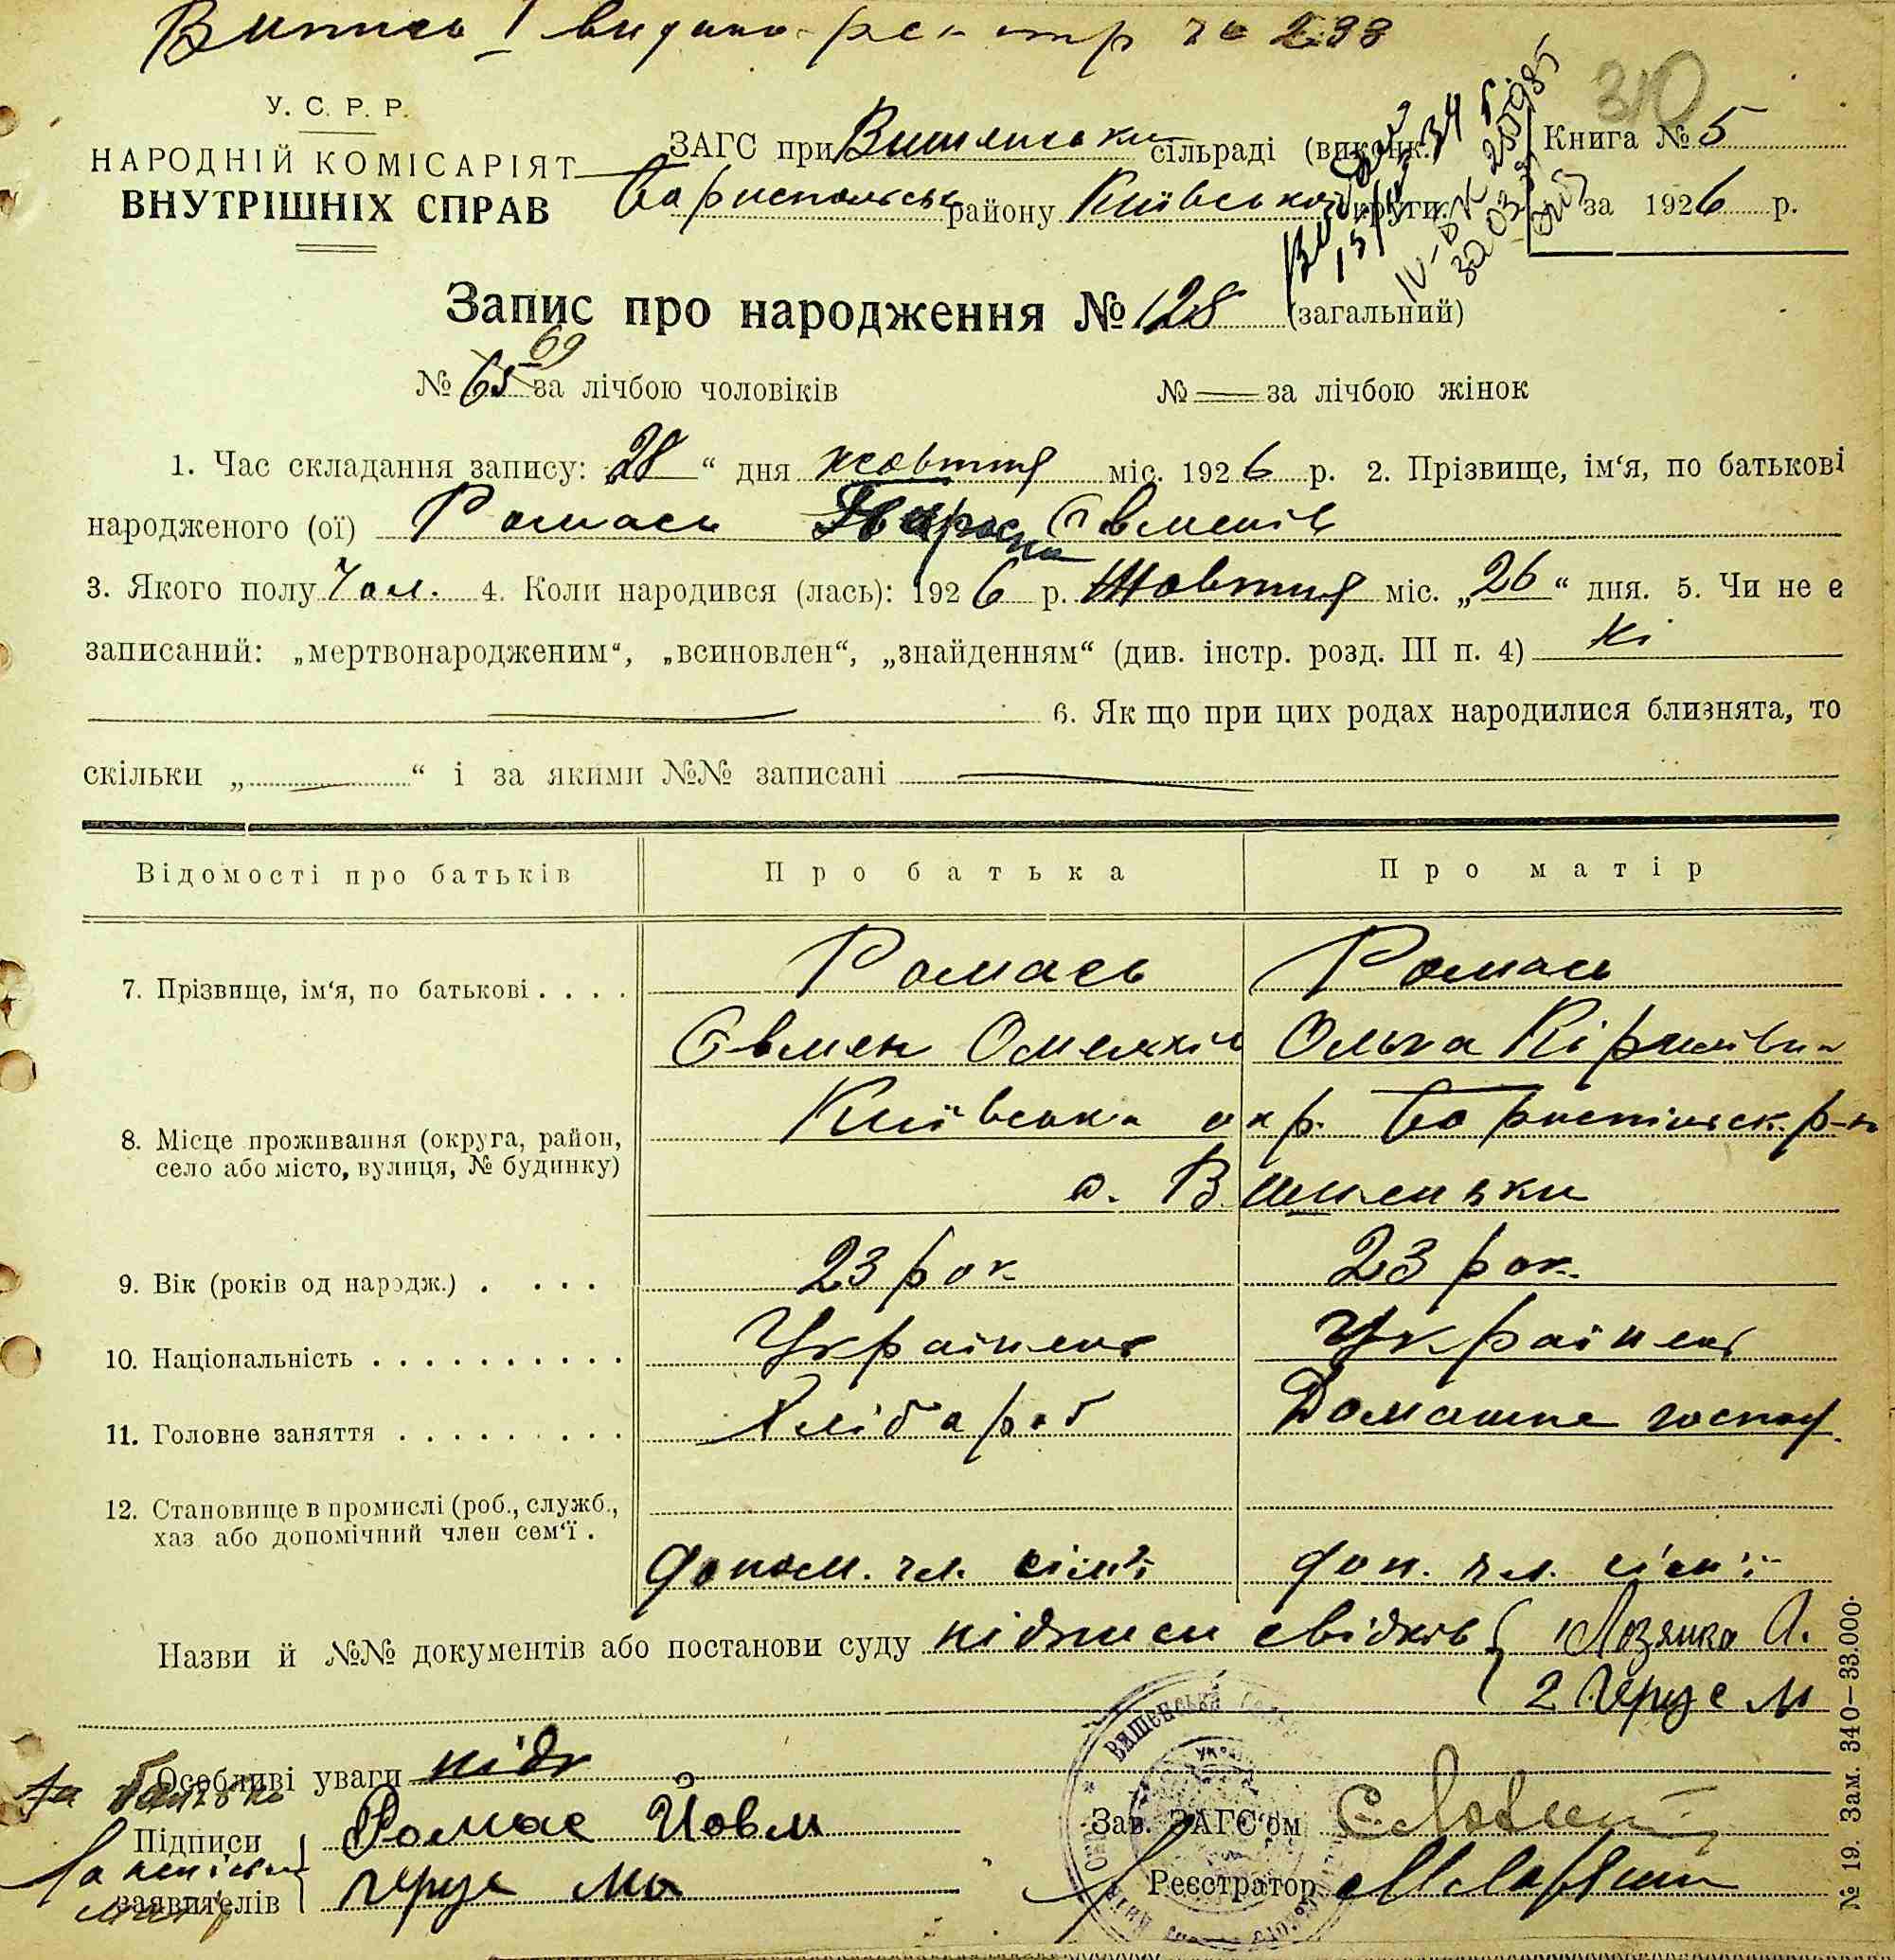 310
У. С. Р. Р.
НАРОДНІЙ КОМІСАРІЯТ
ВНУТРІШНІХ СПРАВ
ЗАГС при Вишеньски сільраді (виконк.)
Бориспольськ району Київської округи.
Книга № 5
за 1926 р.
Запис про народження № 128 (загальний)
69
№ 65 за лічбою чоловіків № — за лічбою жінок
1. Час складання запису: 28 “ дня жовтня міс. 1926 р. 2. Прізвище, ім‘я, по батькові
народженого (ої) Ромась Євменів
3. Якого полу Чол. 4. Коли народився (лась): 1926 р. Жовтня міс. „26“ дня. 5. Чи не є
записаний: „мертвонародженим“, „всиновлен“, „знайденням“ (див. інстр. розд. III п. 4) Ні
6. Як що при цих родах народилися близнята, то
скільки „ — “ і за якими №№ записані —
Відомості про батьків Про батька Про матір
7. Прізвище, ім‘я, по батькові . . . . Ромась Ромась
Євмен Омельків Ольга
8. Місце проживання (округа, район,
село або місто, вулиця, № будинку)
Київська окр. Бориспільск. р-н
с. Вишеньки
9. Вік (років од народж.) . . . . 23 рок. 23 рок.
10. Національність . . . . . . . . . . Українец Українец
11. Головне заняття . . . . . . . . . Хлібароб Домашнє господ.
12. Становище в промислі (роб., служб.,
хаз або допомічний член сем‘ї .
допом. чл. сім'ї доп. чл. сім'ї
Назви й №№ документів або постанови суду підписи свідків { 1 Лозянко А.
2 Герус М
Особливі уваги
За батька
Підписи
заявителів
Ромас Йовм
Герус Ма
Зав. ЗАГС‘ом
Реєстратор
№ 19. Зам. 340—33.000.